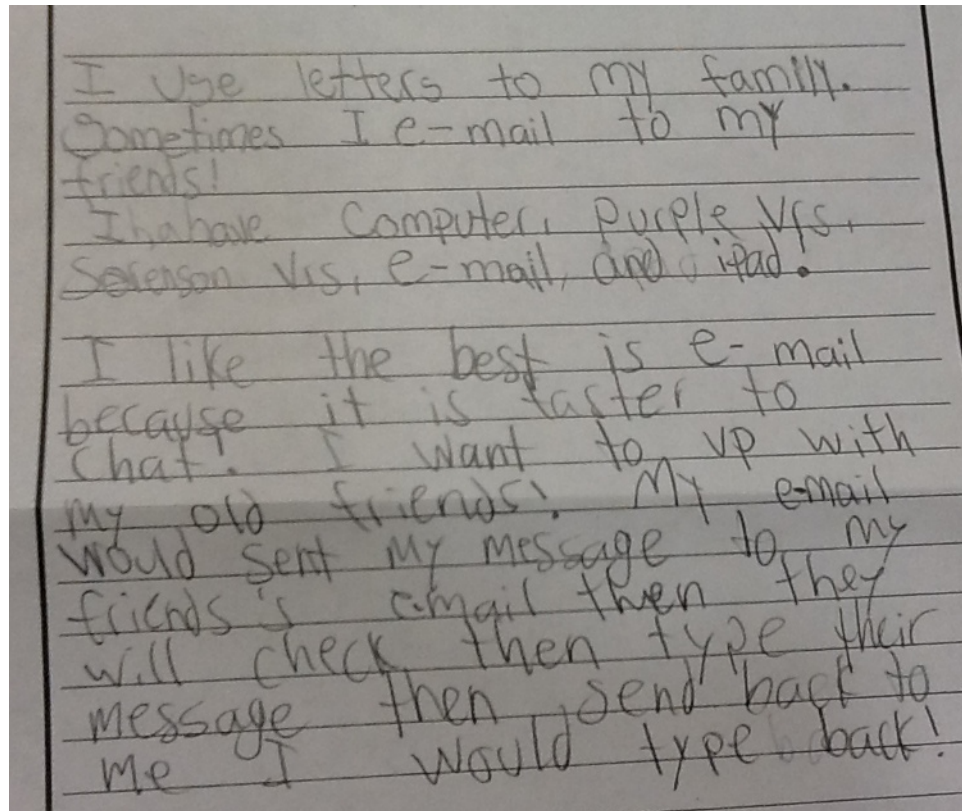 I use letters to my family.
Sometimes I e-mail to my
friends!
I hahave Computer, Purple Vrs,
Sorenson Vrs, e-mail, and ipad.
I like the best is e-mail
because it is faster to
chat! I want to vp with
my old friends! My e-mail
would sent my message to my
friends's e-mail then they
will check then type their
message then send back to
me I would type back!